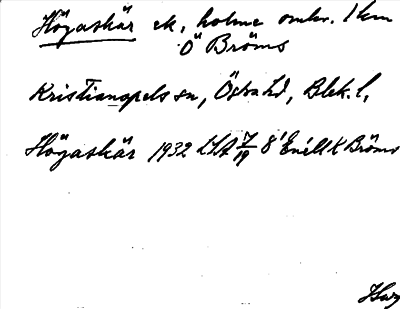 Högaskär ek, holme omkr. 1 km
Ö Bröms
Kristianopels sn, Östra hd, Blek. l,
Högaskär 1932 LSA 7/19 8' Enskilt K Bröms